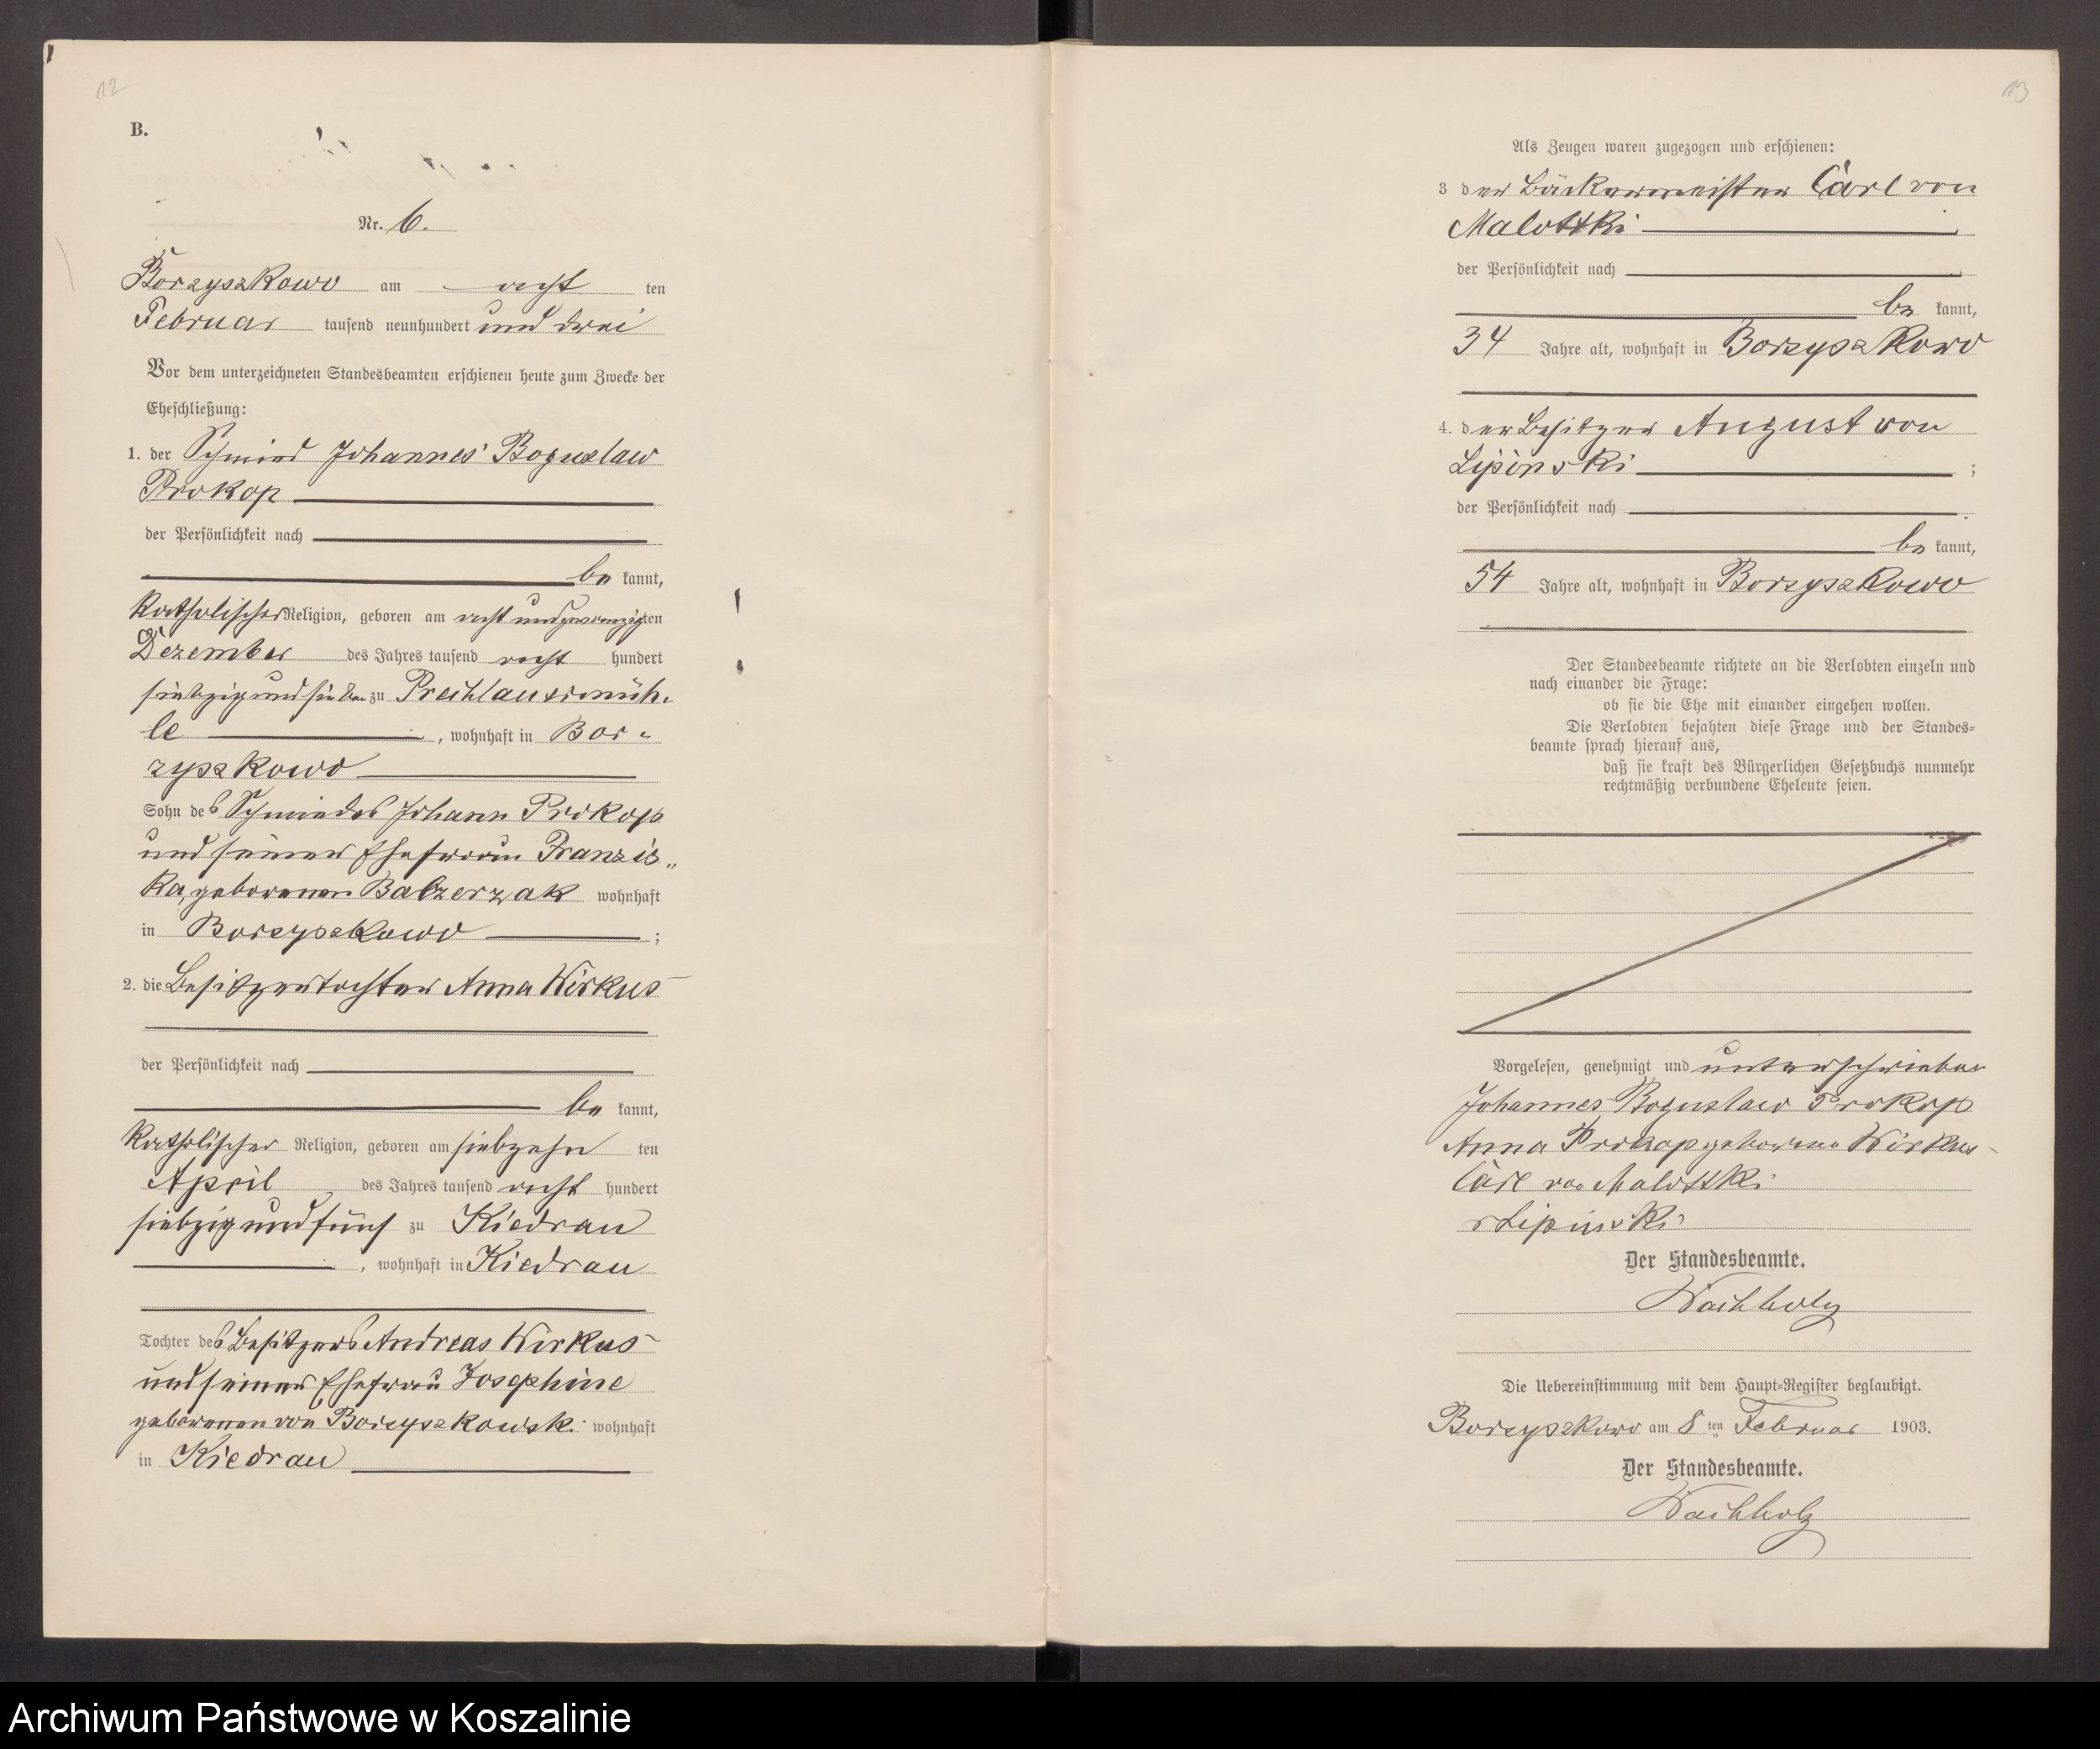 12
B.
Nr. 6.
Borzyszkowo am acht ten
Februar tausend neunhundert und drei
Vor dem unterzeichneten Standesbeamten erschienen heute zum Zwecke der
Eheschließung:
1. der Schmied Johannes Boguslaw
Prokop
der Persönlichkeit nach
be kannt,
katholischer Religion, geboren am acht und zwanzigsten
Dezember des Jahres tausend acht hundert
siebzig und sieben zu Prechlauermüh-
le, wohnhaft in Bor-
zyszkowo
Sohn des Schmiedes Johann Prokop
und seiner Ehefrau Franzis-
ka, geborenen Balzerzak wohnhaft
in Borzyszkowo;
2. die Besitzertochter Anna Wirkus
der Persönlichkeit nach
be kannt,
katholischer Religion, geboren am siebzehn ten
April des Jahres tausend acht hundert
siebzig und fünf zu Kiedrau
, wohnhaft in Kiedrau
Tochter des Besitzers Andreas Wirkus
und seiner Ehefrau Josephine
geborenen von Borzyszkowski wohnhaft
in Kiedrau
13
Als Zeugen waren zugezogen und erschienen:
3 der Bäckermeister Carl von
Malottki
der Persönlichkeit nach
be kannt,
34 Jahre alt, wohnhaft in Borzyszkowo
4. der Besitzer August von
Lipinski ;
der Persönlichkeit nach
be kannt,
54 Jahre alt, wohnhaft in Borzyszkowo
Der Standesbeamte richtete an die Verlobten einzeln und
nach einander die Frage:
ob sie die Ehe mit einander eingehen wollen.
Die Verlobten bejahten diese Frage und der Standes-
beamte sprach hierauf aus,
daß sie kraft des Bürgerlichen Gesetzbuchs nunmehr
rechtmäßig verbundene Eheleute seien.
Vorgelesen, genehmigt und unterschrieben
Johannes Boguslaw Prokop
Anna Prokop geborene Wirkus
Carl von Malottki
v Lipinski
Der Standesbeamte.
Wachholz
Die Uebereinstimmung mit dem Haupt-Register beglaubigt.
Borzyszkowo am 8 ten Februar 1903.
Der Standesbeamte.
Wachholz
Archiwum Państwowe w Koszalinie